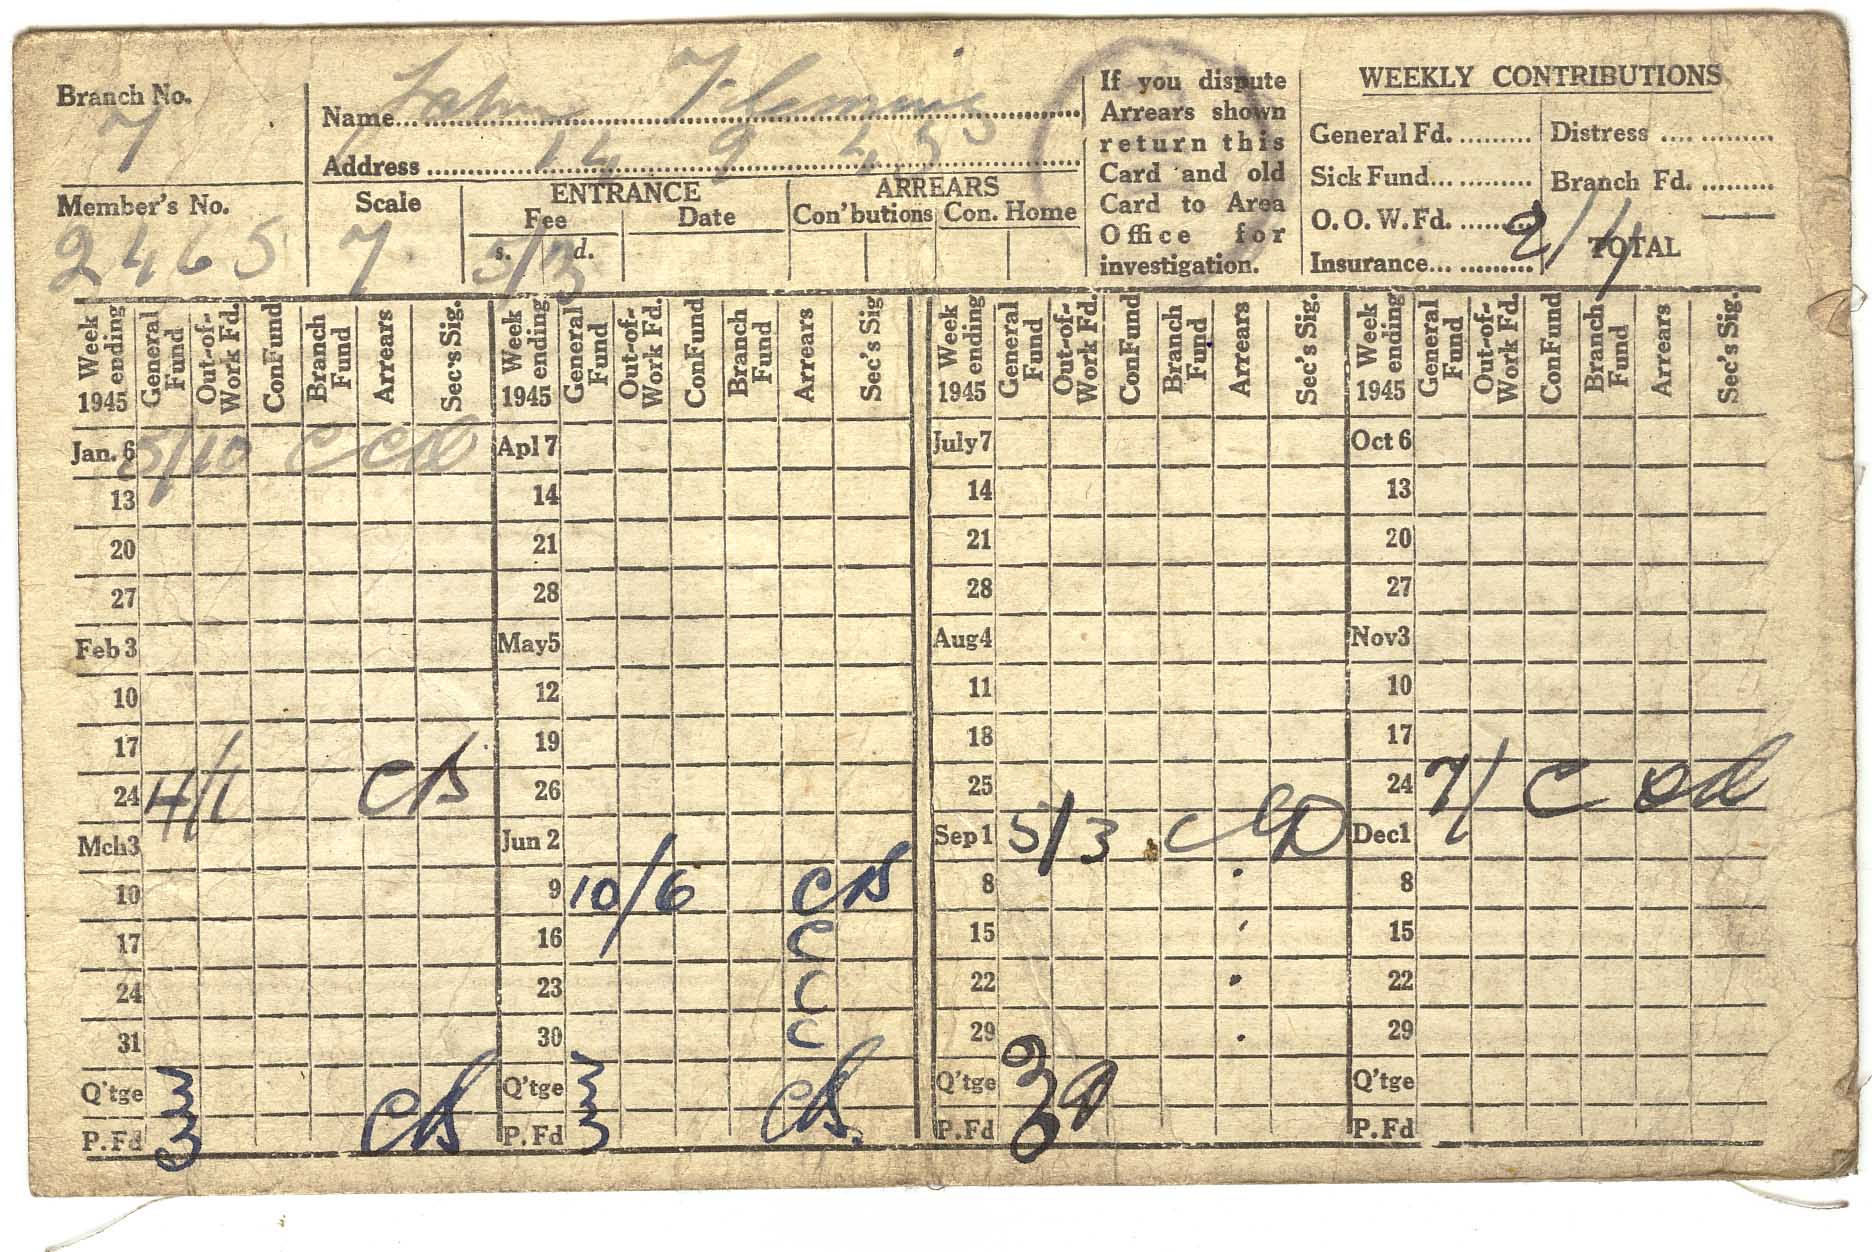 Branch No.
7
Name... John Flemming
Address ... 14 9 45
Member's No.
2465
Scale
7
ENTRANCE
Fee
s. d.
5/3
Date
ARREARS
Con'butions Con. Home
If you dispute
Arrears shown
return this
Card and old
Card to Area
Office for
investigation.
WEEKLY CONTRIBUTIONS
General Fd. ......... Distress .... .........
Sick Fund... ......... Branch Fd. .........
O. O. W. Fd. ......... 2/4 TOTAL
Insurance... .........
Week ending 1945 General Fund Out-of-Work Fd. ConFund Branch Fund Arrears Sec's Sig. Week ending 1945 General Fund Out-of-Work Fd. ConFund Branch Fund Arrears Sec's Sig Week ending 1945 General Fund Out-of-Work Fd. ConFund Branch Fund Arrears Sec's Sig. Week ending 1945 General Fund Out-of-Work Fd. ConFund Branch Fund Arrears Sec's Sig.
Jan. 6 5/10 C Apl 7 July 7 Oct 6
13 14 14 13
20 21 21 20
27 28 28 27
Feb 3 May 5 Aug 4 Nov 3
10 12 11 10
17 19 18 17
24 4/1 26 25 24 7/ C
Mch 3 Jun 2 Sep 1 5/3 C Dec 1
10 9 10/6 8 8
17 16 C 15 15
24 23 C 22 22
31 30 C 29 29
Q'tge 3 Q'tge 3 Q'tge 3 Q'tge
P. Fd 3 P. Fd 3 P. Fd P. Fd